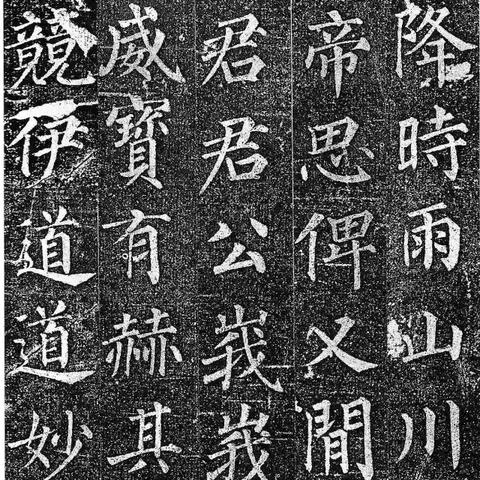 降時雨山川
帝思俾乂閒
君君公峩峩
威寶有赫其
競伊道道妙